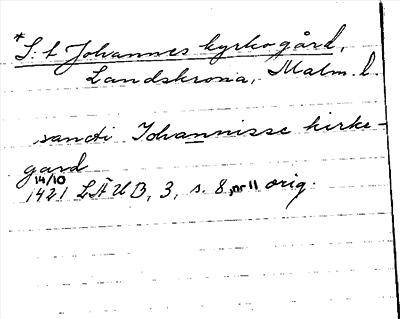 *S:t Johannes kyrkogård,
Landskrona, Malm. l.
sancti Johannisse kirke-
gard
14/10
1421 LÄUB, 3, s. 8, nr 11 orig.